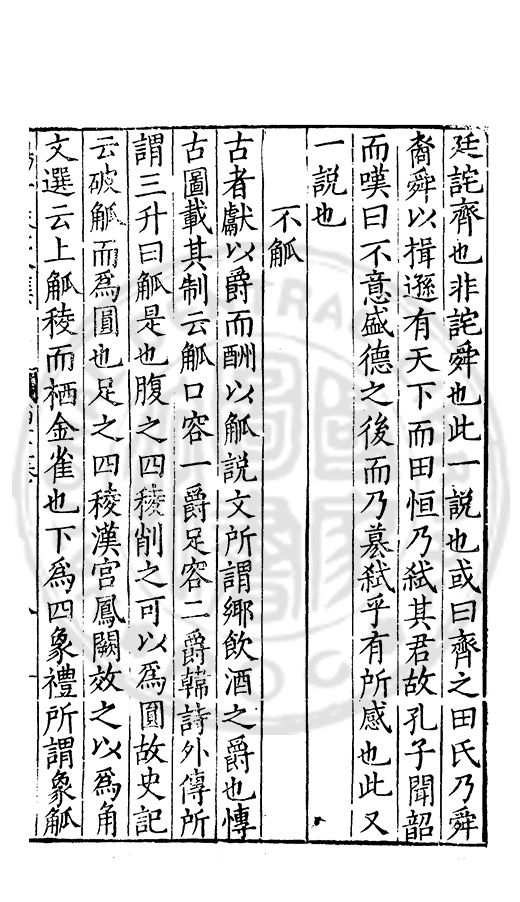 廷詫齊也非詫舜也此一説也或曰齊之田氏乃舜
裔舜以揖遜有天下而田恒乃弑其君故孔子聞韶
而嘆曰不意盛德之後而乃簒弑乎有所感也此又
一説也
不觚
古者獻以爵而酬以觚説文所謂鄉飲酒之爵也慱
古圖載其制云觚口容一爵足容二爵韓詩外傳所
謂三升曰觚是也腹之四稜削之可以爲圓故史記
云破觚而爲圓也足之四稜漢宫鳳闕效之以爲角
文選云上觚稜而栖金雀也下爲四象禮所謂象觚